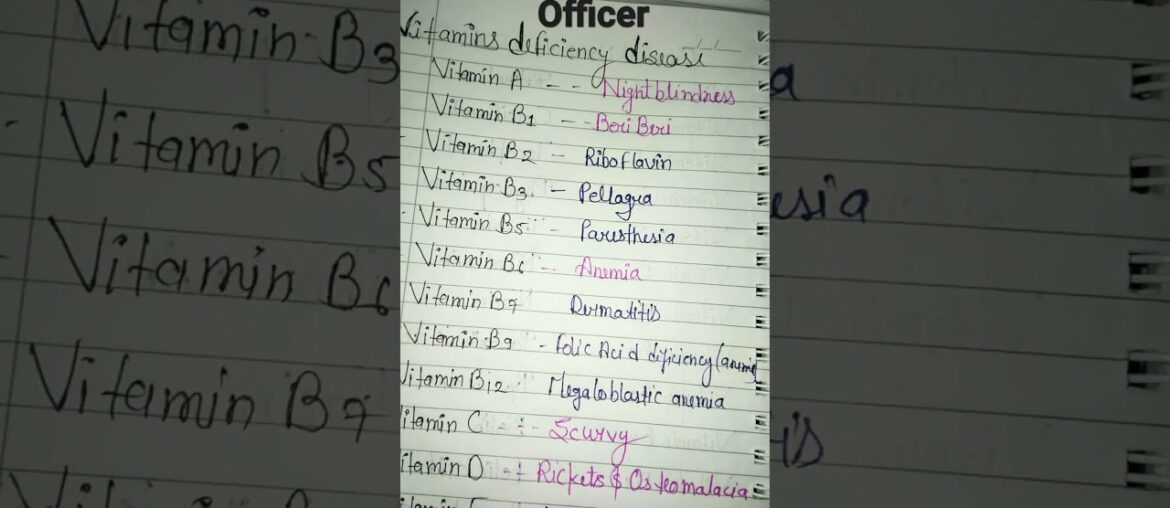 Officer
Vitamins deficiency disease
Vitamin A - - Nightblindness
Vitamin B1 - - Beri Beri
Vitamin B2 - Riboflavin
Vitamin B3 - Pellagra
Vitamin B5 - Paresthesia
Vitamin B6 - Anemia
Vitamin B7 Dermatitis
Vitamin B9 - Folic Acid dificiency (anemia
Vitamin B12 Megaloblastic anemia
itamin C -:- Scurvy
itamin D -:- Rickets & Osteomalacia
Vitamin B3
Vitamin B5
Vitamin B6
Vitamin B7
a
esia
is